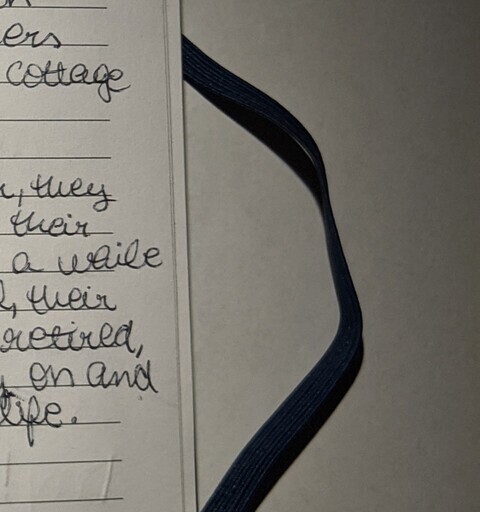 ers
cottage
, they
their
a waile
, their
retired,
on and
life.